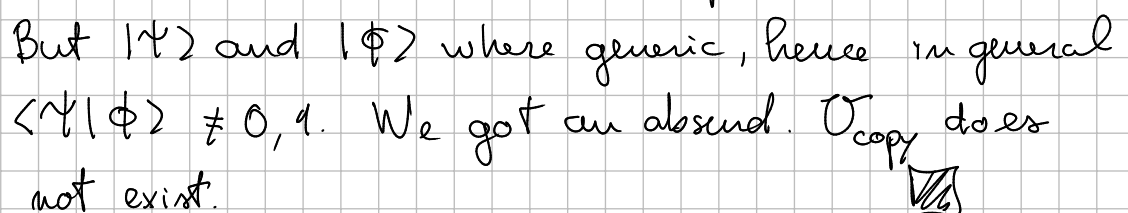 But |ψ⟩ and |ϕ⟩ where generic, hence in general
⟨ψ|ϕ⟩ ≠ 0,1. We got an absurd. U_copy does
not exist.